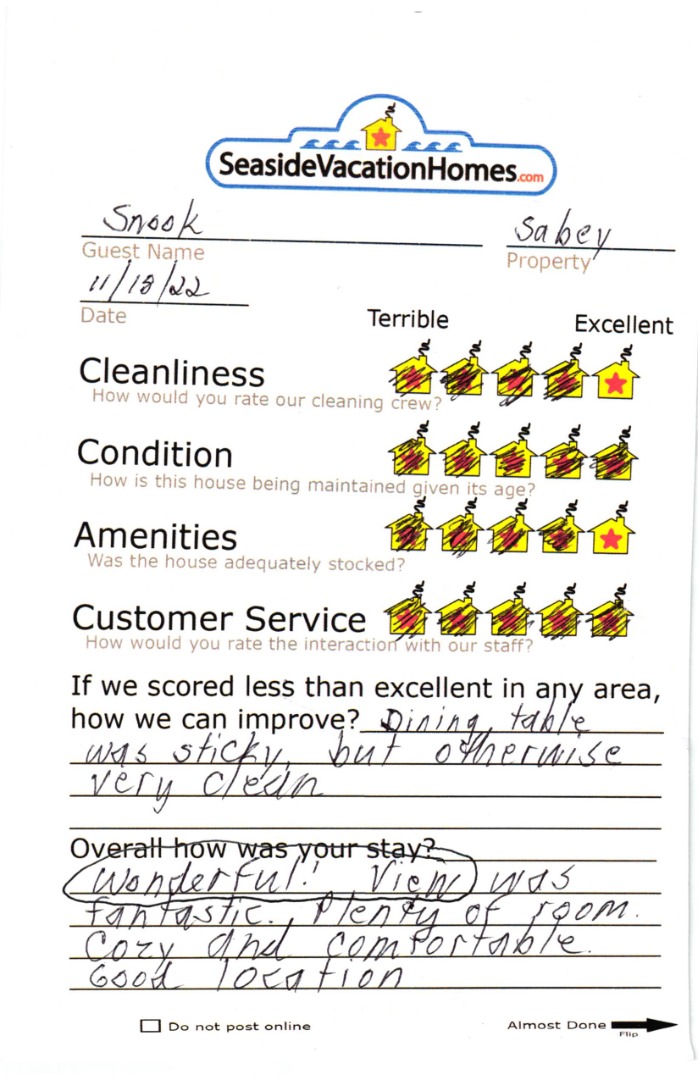 SeasideVacationHomes.com
Snook Sabey
Guest Name Property
11/18/22
Date
Terrible Excellent
Cleanliness
How would you rate our cleaning crew?
Condition
How is this house being maintained given its age?
Amenities
Was the house adequately stocked?
Customer Service
How would you rate the interaction with our staff?
If we scored less than excellent in any area,
how we can improve? Dining table
was sticky, but otherwise
very clean
Overall how was your stay?
Wonderful! View was
fantastic. Plenty of room.
Cozy and comfortable.
Good location
Do not post online Almost Done
Flip